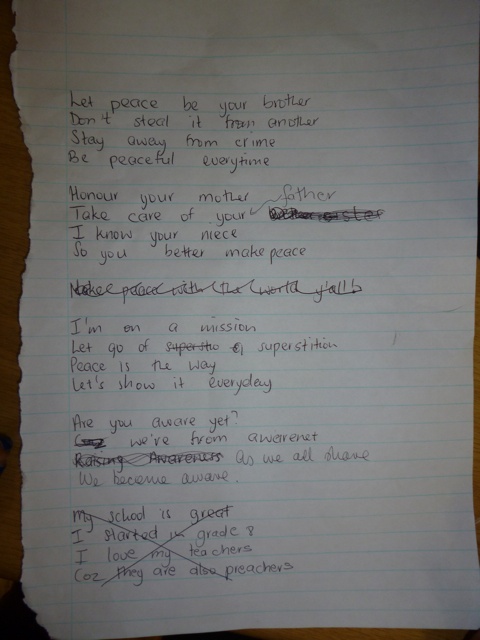 Let peace be your brother
Don't steal it from another
Stay away from crime
Be peaceful everytime
Honour your mother
Take care of your father
I know your niece
So you better make peace
Make peace with the world y'all
I'm on a mission
Let go of supersto superstition
Peace is the way
Let's show it everyday
Are you aware yet?
Coz we're from awarenet
Raising Awareness As we all share
We become aware.
My school is great
I started in grade 8
I love my teachers
Coz they are also preachers